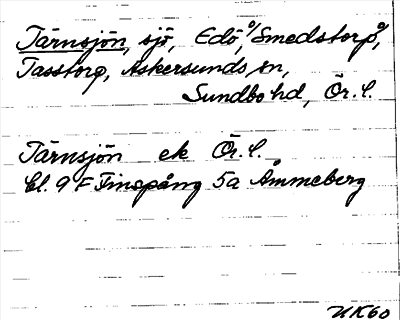 Tärnsjön, sjö, Edö o/ Smedstorp o,
Tasstorp, Askersunds sn,
Sundbo hd, Ör. l.
Tärnsjön ek Ör. l.
bl. 9 F Finspång 5a Åmmeberg
UK60